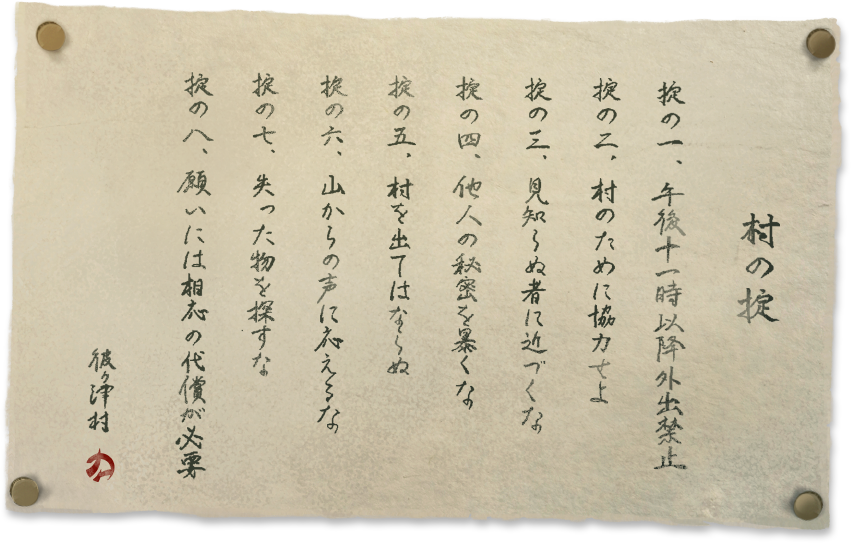 村の掟
掟の一、午後十一時以降外出禁止
掟の二、村のために協力せよ
掟の三、見知らぬ者に近づくな
掟の四、他人の秘密を暴くな
掟の五、村を出てはならぬ
掟の六、山からの声に応えるな
掟の七、失った物を探すな
掟の八、願いには相応の代償が必要
彼ヶ津村